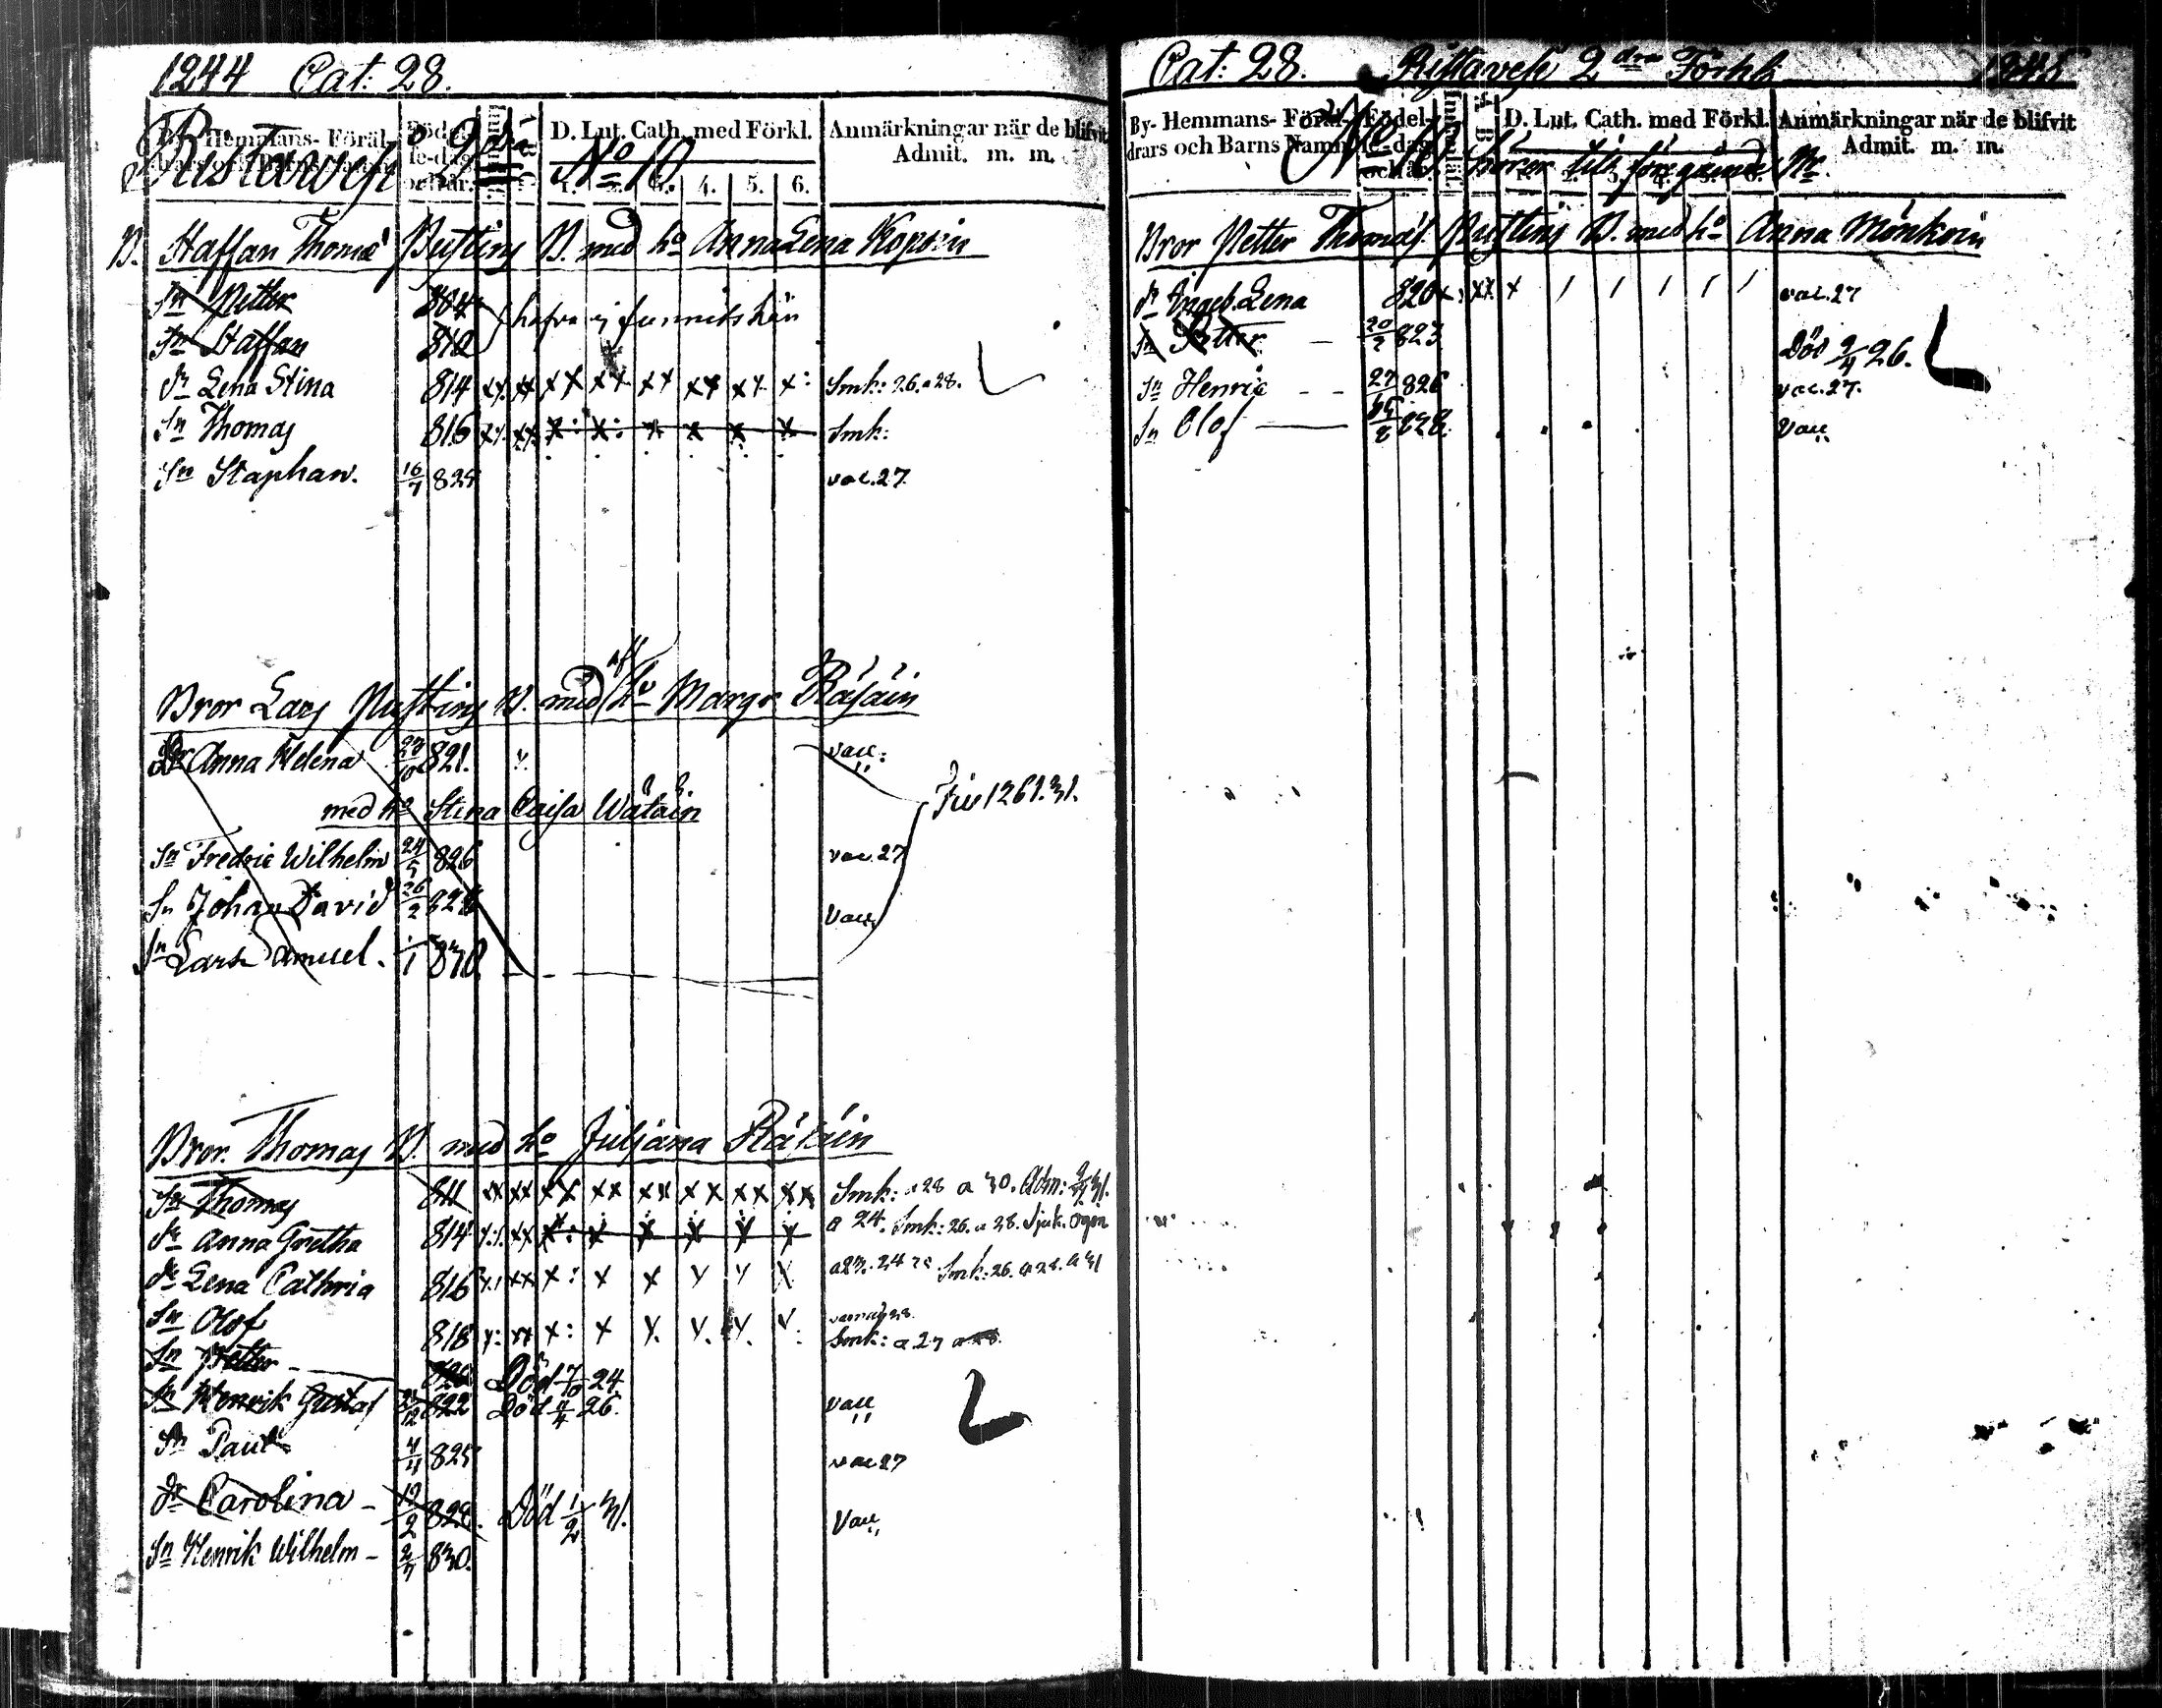 1244 Cat: 28.
By- Hemmans- Föräl-
drars och Barns Namn
Födel-
se-dag
och år.
D. Lut. Cath. med Förkl.
Anmärkningar när de blifvit
Admit. m. m.
Ristavesi 2dra No 10
4. 5. 6.
B. Staffan Thomas Pustin B. med ho Anna Lena Kopoin
Sn Petter 804
Sn Staffan 810
hafva ej funnits här
dr Lena Stina 814 Smk: 26. a 28.
Sn Thomas 816 Smk:
Sn Staphan. 16/7 825 vac. 27.
Bror Lars B. med ho Margr Räsäin
dr Anna Helena 27/10 821. vacc:
med ho Stina Caisa Wätäin
Fiv 1261. 31.
Sn Fredric Wilhelm 24/5 826 vac. 27
Sn Johan David 26/2 828 Vacc
Sn Lars Samuel. 1/1 830
Bror. Thomas B. med ho Juliana Räsäin
Sn Thomas 811 Smk: a 28 a 30. Adm: 31.
dr Anna Gretha 814 a 24. Smk: 26. a 28. Sjuk. ögon
dr Lena Cathria 816 Smk: 26. a 28. a 31
Sn Olof 818 Smk: a 27 a 28.
Sn Petter 820 Död 7/10 24.
Sn Henrik Gustaf 822 Död 26. vacc
Sn Paul 4/4 825 vac 27
dr Carolina 19/2 828. Död 1/2 31. Vacc
Sn Henrik Wilhelm 2/7 830.
Cat: 28. Ristavesi 2dra Förhb 1245
By- Hemmans- Föräl-
drars och Barns Namn
Födel-
se-dag
och år.
D. Lut. Cath. med Förkl.
Anmärkningar när de blifvit
Admit. m. m.
No 10 hörer till föregående Nr.
Bror Petter Thomas B. med ho Anna Mönköin
dr Ingeb. Lena 820 vac. 27
Sn Petter 20/2 823 Död 9/4 26.
Sn Henric 27/ 826 vac. 27.
Sn Olof 828. Vacc